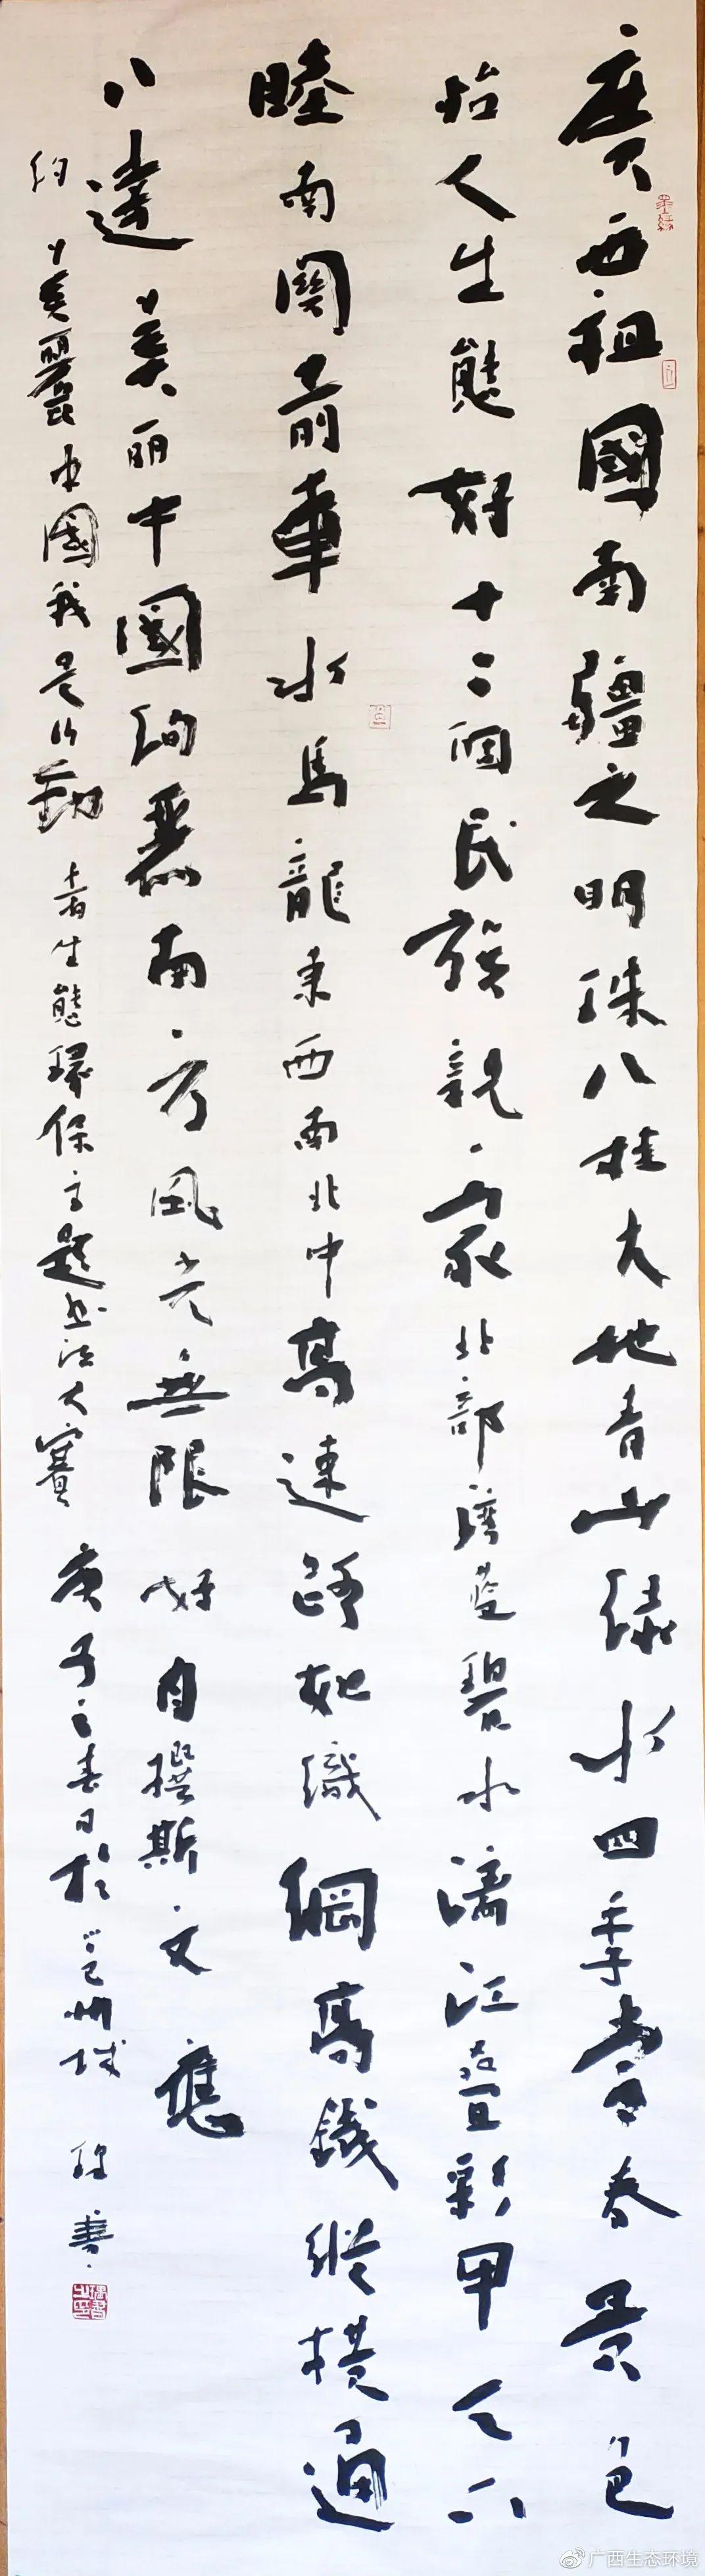 廣西祖國南疆之明珠八桂大地青山綠水四季常春景色
怡人生態好十二個民族親一家北部灣藍碧水漓江疊彩甲天下
睦南關前車水馬龍東西南北中高速路如織網高鐵縱橫通
八達美丽中國絢南方風光無限好自撰斯文應
约美麗中國我是行動者生態環保主題書法大賽庚子之春日於邕州城書
广西生态环境